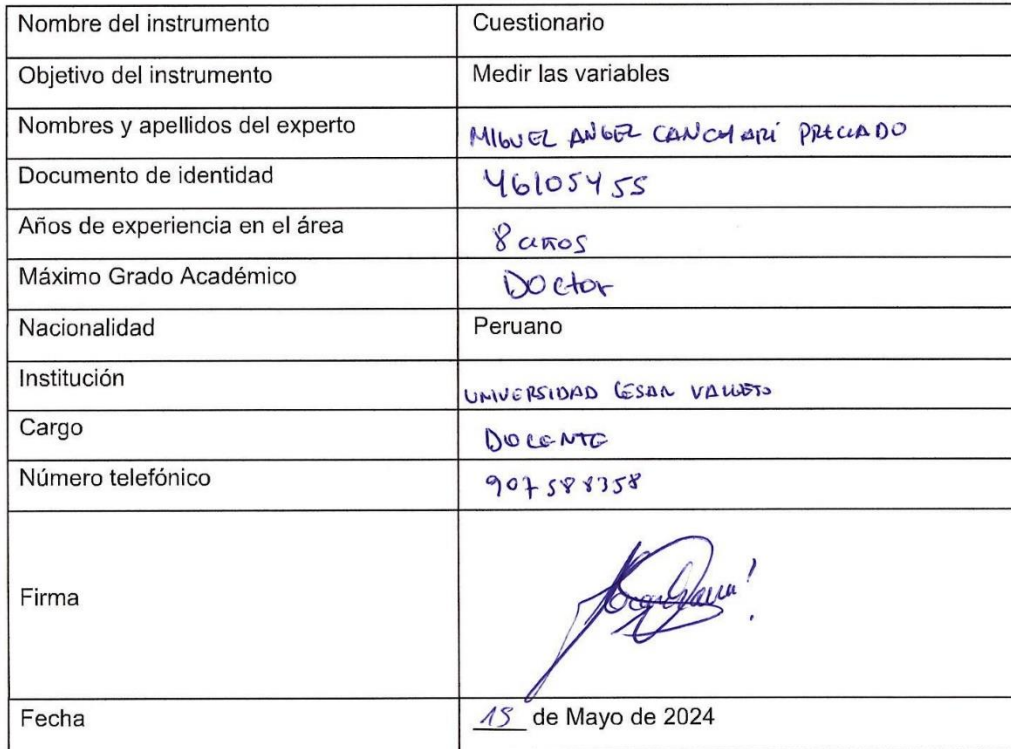 Nombre del instrumento Cuestionario
Objetivo del instrumento Medir las variables
Nombres y apellidos del experto MIGUEL ANGEL CANCHARI PRECIADO
Documento de identidad 46105455
Años de experiencia en el área 8 años
Máximo Grado Académico Doctor
Nacionalidad Peruano
Institución UNIVERSIDAD CESAR VALLEJO
Cargo DOCENTE
Número telefónico 907588358
Firma
Fecha 15 de Mayo de 2024